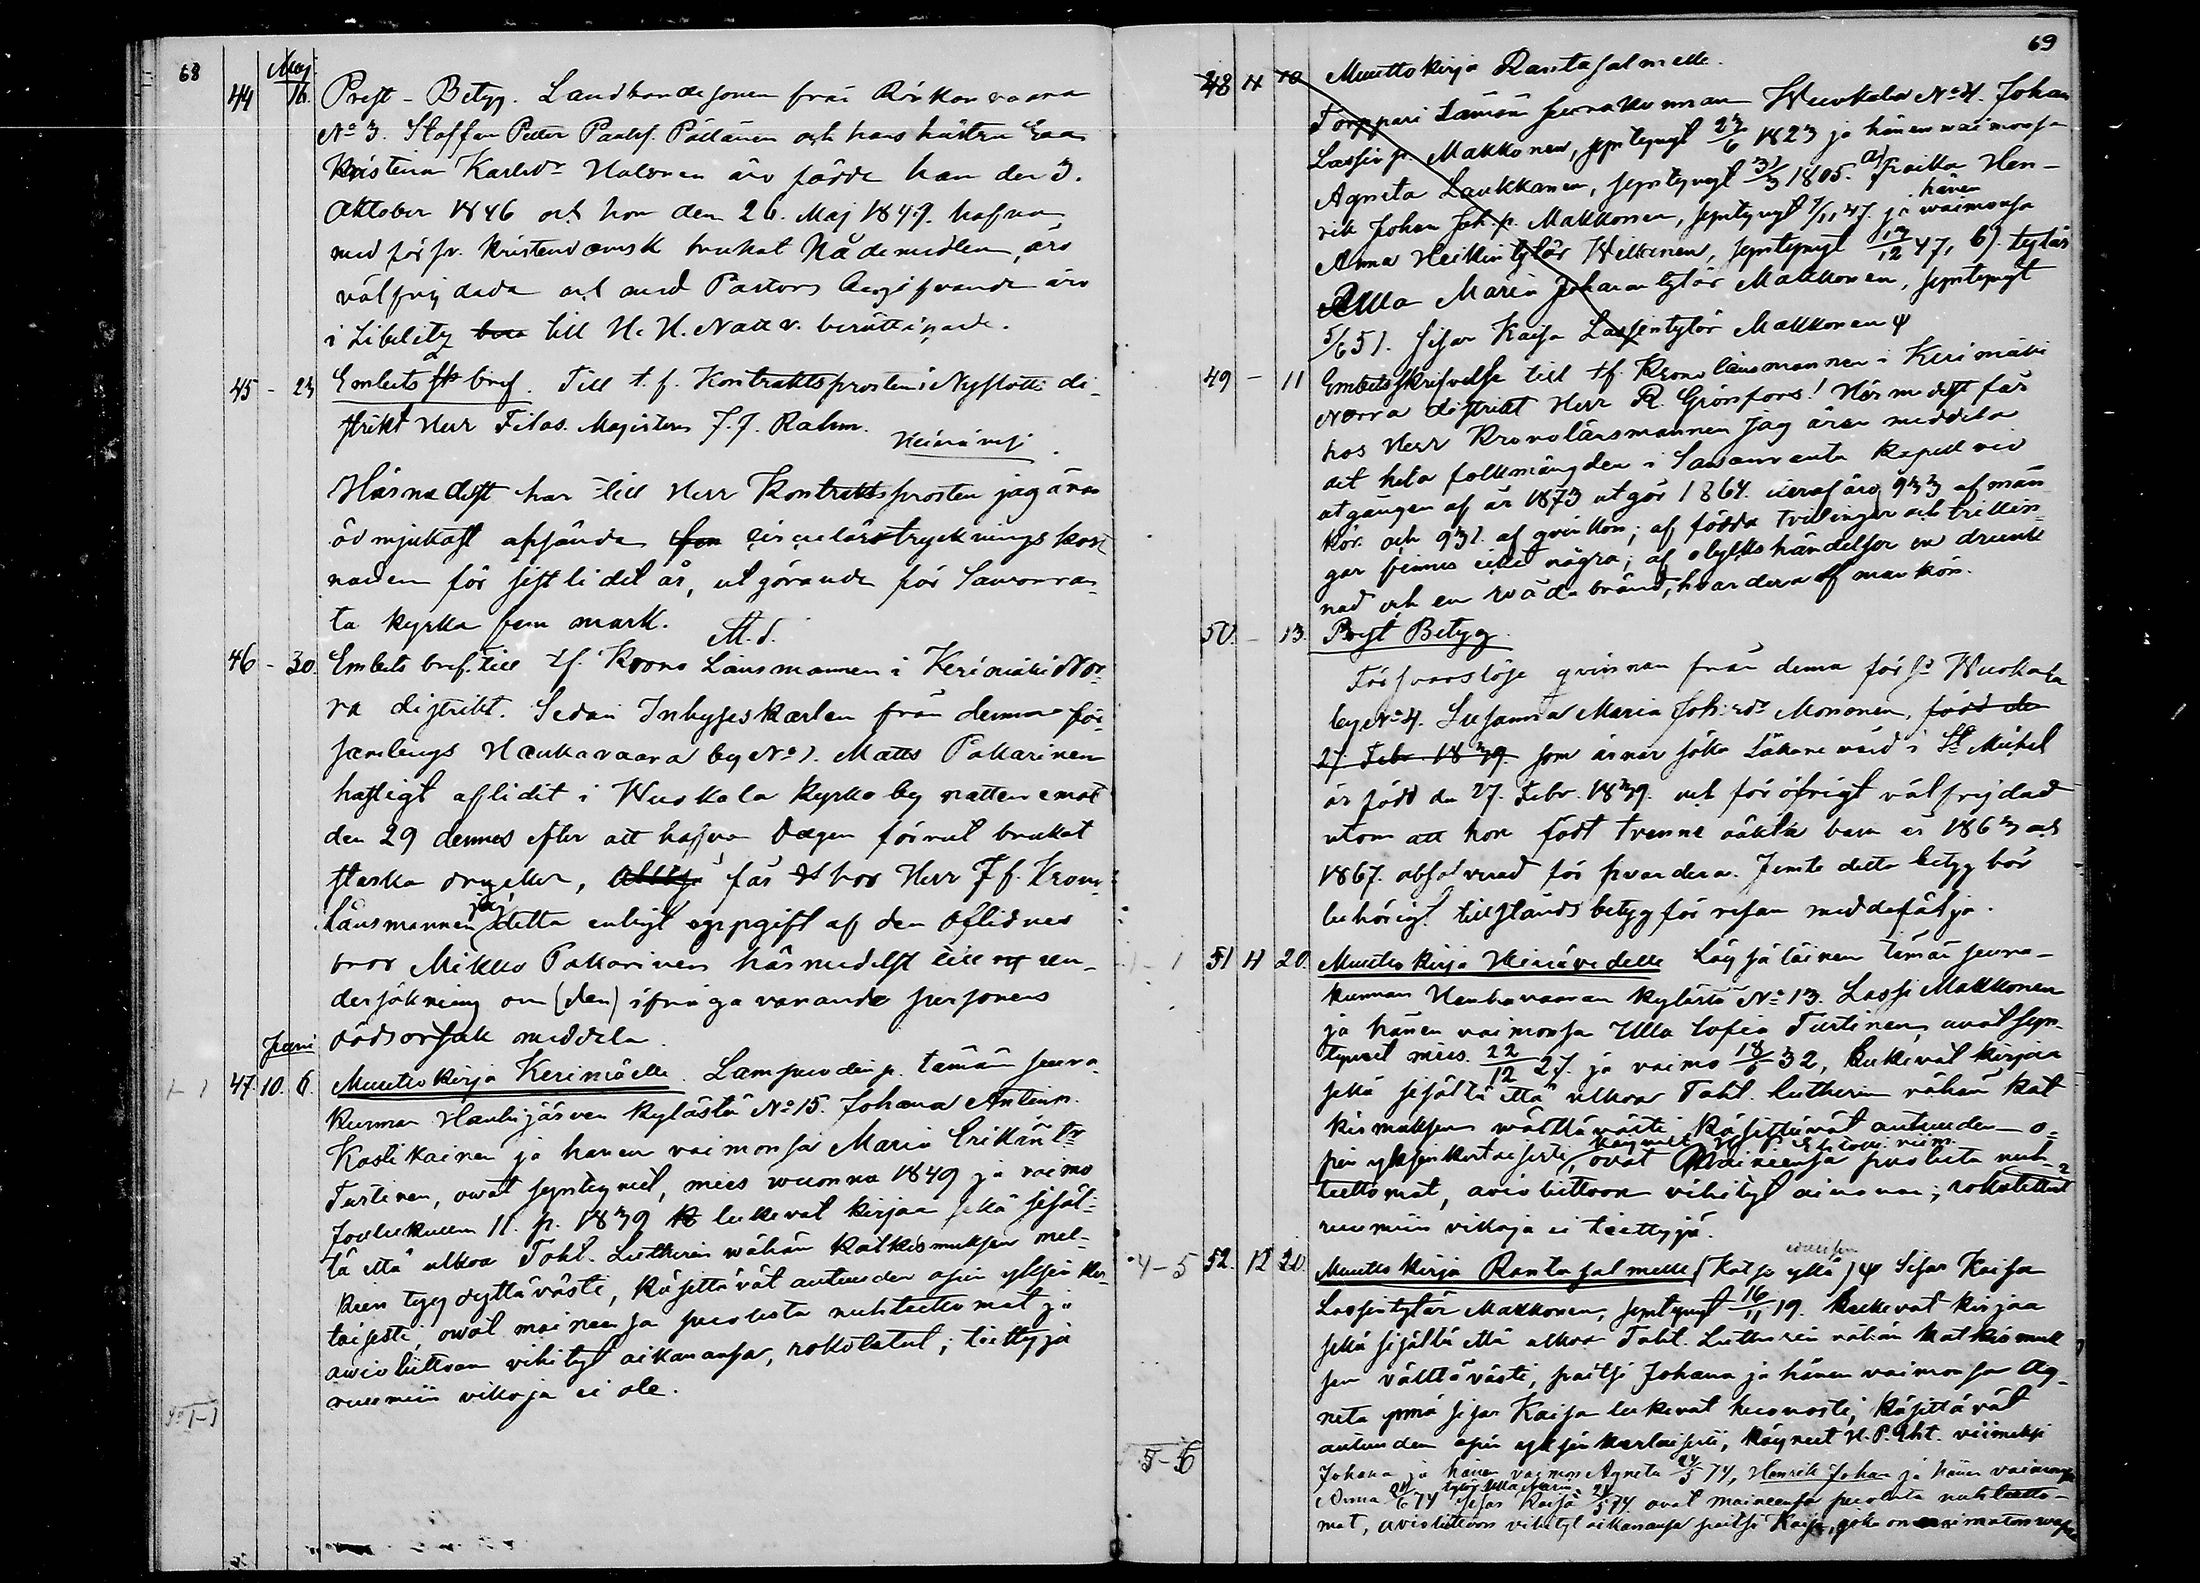 68
Maj.
44 16. Prest-Betyg. Landbondesonen från Rönkönvaara
No 3. Staffan Petter Paulsf. Pöllänen och hans hustru Eva
Kristina Karlsdr Halonen äro födde han den 3.
Oktober 1846 och hon den 26. Maj 1849. hafva
med försv. kristendomsk brukat Nådemedlen, äro
välfrejdade och med Pastors äro
i Libelitz till H. H. Nattv. berättigade.
45 - 23 Embets bref. Till t. f. Kontraktsprosten i Nyslotts di-
strikt Herr Filos. Magistern J. J. Rahm.
Heinävesi
Härmedelst har till Herr Kontraktsprosten jag äran
ödmjukast afsända circulärstryckningskost
naden för sistlidet år, utgörande för Savonran-
ta kyrka fem mark.
46 - 30. Embets bref. till tf. Krono Länsmannen i Kerimäki Nor-
ra distrikt. Sedan Inhyseskarlen från denna för-
samlings Haukavaara by No 1. Matts Pakarinen
hastigt aflidit i Wuokala kyrkoby natten emot
den 29 dennes efter att hafva dagen förut brukat
starka drycker, Alltså får hos Herr Tf. Krono-
länsmannen jag detta enligt uppgift af den aflidnes
bror Mikko Pakarinen härmedelst till un-
dersökning om (den) ifrågavarande persons
dödsorsak meddela.
Juni
47. 10. 6. Muuttokirja Kerimäelle. Lampuodin p. tämän seura-
kunnan Hanhijärven kylästä No 15. Johana Antinp.
Kostikainen ja hänen vaimonsa Maria Erikintr
Turtinen, ovat syntyneet, mies vuonna 1849 ja vaimo
Joulukuun 11. p. 1839 lukevat kirjaa sekä sisäl-
tä että ulkoa Toht. Lutherin wähän Katkismuksen mel-
keen tyydyttäväste, käsittävät autuuden opin yksinker-
taisesti, ovat maineensa puolesta nuhteettomat ja
avioliittoon vihityt aikanansa, rokotetut; tiettyjä
ruumiin vikoja ei ole.
69
48 11 10 Muuttokirja Rantasalmelle.
Torppari tämän seurakunnan Wuokala No 4. Johan
Lassinp. Makkonen, syntynyt 23/6 1823 ja hänen vaimonsa
Agneta Laukkanen, syntynyt 31/3 1805. a) poika Hen-
rik Johan Joh. p. Makkonen, syntynyt 7/11 47. ja hänen vaimonsa
Anna Heikintytär Welkonen, syntynyt 17/12 47, b). tytär
Ulla Maria Johanintytär Makkonen, syntynyt
5/6 51. Sisar Kaisa Lassintytär Makkonen ψ
49 - 11 Embetsskrifvelse till tf Kronolänsmannen i Kerimäki
Norra distrikt Herr R. Grönfors! Härmedelst får
hos Herr Kronolänsmannen jag äran meddela
att hela folkmängden i Savonranta Kapell vid
utgången af år 1873 utgör 1864. deraf äro 933 af man-
kön och 931. af qvinkön; af födda tvillingar och trillin-
gar finnes icke några; af olyckshändelser en drunk-
nad och en vådabränd, hvardera af mankön.
50. - 13. Prest Betyg.
Försvarslösa qvinnan från denna förs. Wuokala
by No 4. Susanna Maria Joh:sdr Mononen, född den
27 Febr. 1839. som ärnar söka Läkarevård i St Michel
är född den 27. Febr. 1839. och för öfrigt välfrejdad
utom att hon födt tvenne oäkta barn år 1863 och
1867. absolverad för hvardera. Jemte detta betyg bör
behörigt tillståndsbetyg för resan meddefölja.
1 51 11 20. Muuttokirja Heinävedelle Löysäläinen tämän seura-
kunnan Haukavaaran kylästä No 13. Lassi Makkonen
ja hänen vaimonsa Ulla Sofia Turtinen, ovat syn-
tyneet mies. 22/12 27. ja vaimo 18/6 32, Lukevat kirjaa
sekä sisältä että ulkoa Toht. Lutherin vähän Kat
kismuksen välttäväste, käsittävät autuuden o-
pin yksinkertaisesti, ovat käyneet viim. maineensa puolesta nuh-
teettomat, avioliittoon vihityt ainanan; rokotettut
ruumiin vikoja ei tiettyjä.
4-5 52. 12 20. Muuttokirja Rantasalmelle (Katso yllä edellisen) ψ Sisar Kaisa
Lassintytär Makkonen, syntynyt 16/11 19. Lukevat kirjaa
sekä sisältä että ulkoa Toht. Lutherin vähän Katkismuk
sen välttäväste, paitsi Johana ja hänen vaimonsa Ag-
neta ynnä sisar Kaisa lukevat huonosti, käsittävät
autuuden opin yksinkertaisesti, käyneet H. P. Eht. viimeksi
5-6
Johana ja hänen vaimons Agneta 24/5 74, Henrik Johan ja hänen vaimonsa
Anna 21/6 74 tytär Ulla Maria sisar Kaisa 24/5 74 ovat maineensa puolesta nuhteetto-
mat, avioliittoon vihityt aikanansa paitsi Kaisa, joka on naimaton